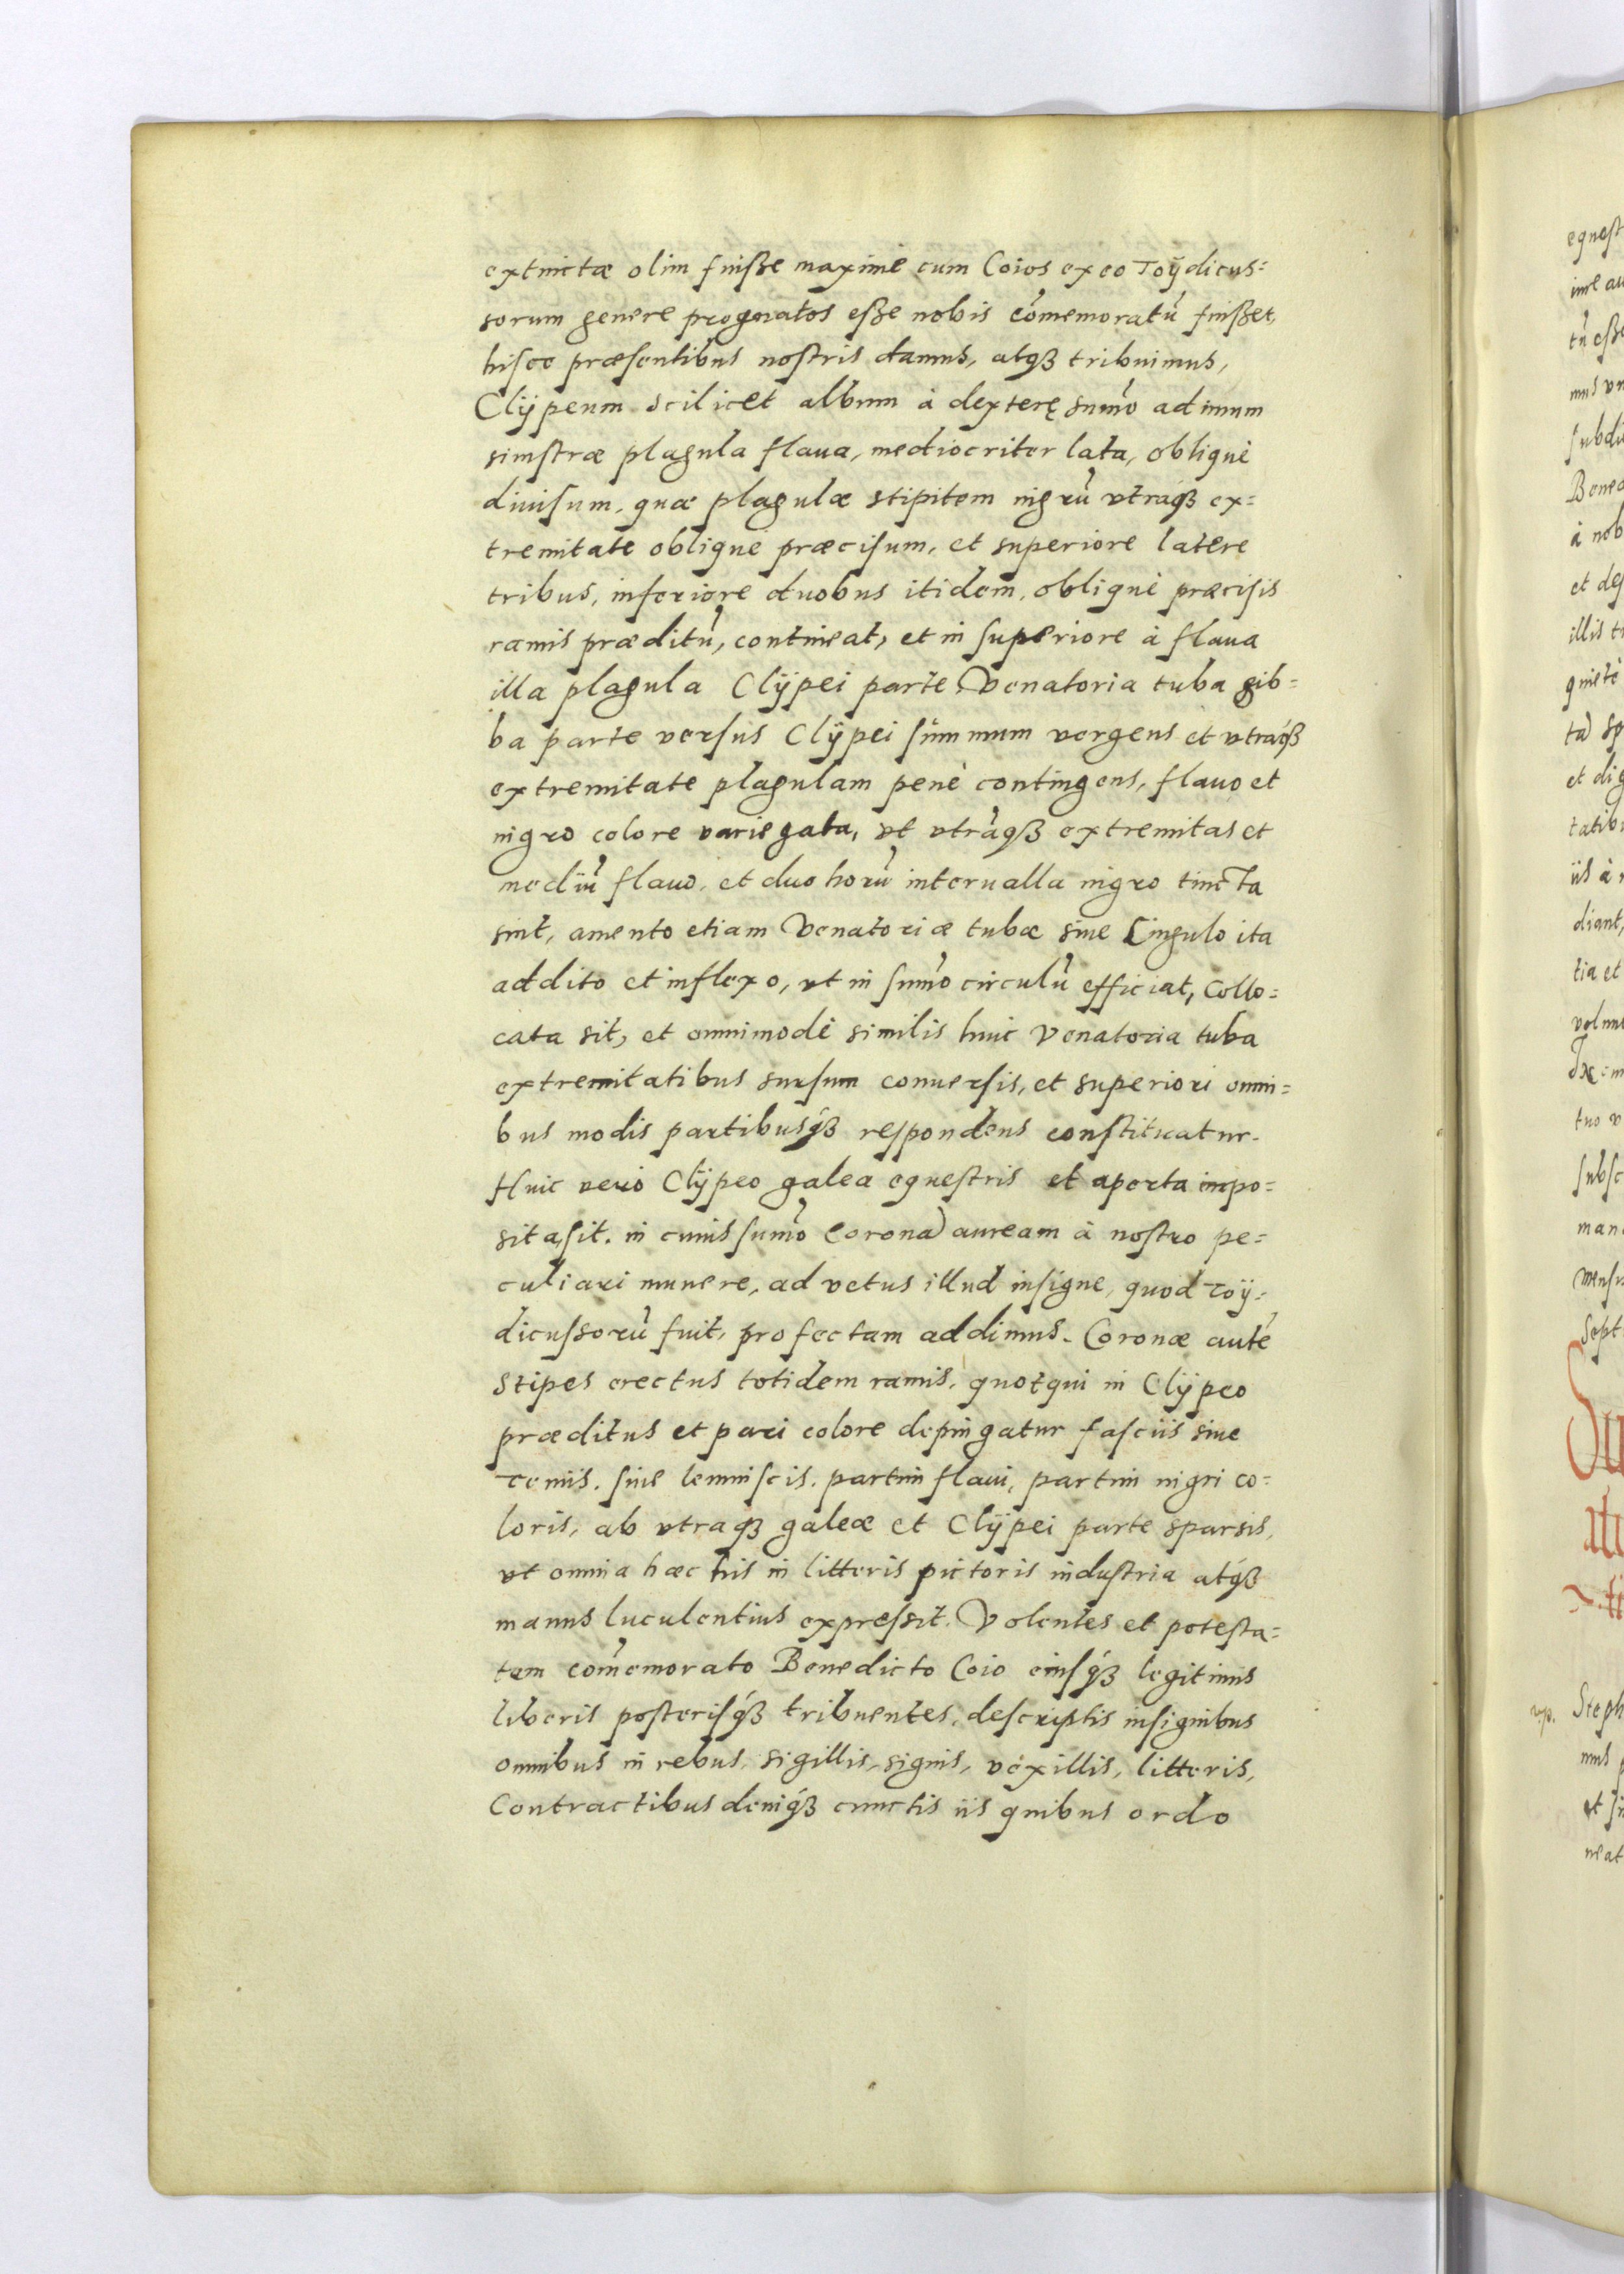 extinctæ olim fuiſse maximè cum Coios ex eo Toÿdicus=
sorum genere prognatos eſse nobis com̃emoratũ fuiſset,
hiſce præſentibus noſtris damus, atqꝫ tribuimus,
Clÿpeum scilicet album à dexterę sum̃o ad imum
siniſtræ plagula flaua, mediocriter lata, obliquè
diuiſum, quæ plagulæ stipitem nigrũ vtraqꝫ ex=
tremitate oblique præciſum, et superiore latere
tribus, inferiore duobus itidem, obliquè præciſis
ramis præditũ, contineat, et in ſuperiore à flaua
illa plagula Clÿpei parte, Venatoria tuba gib=
ba parte verſus Clÿpei ſummum vergens et vtráqꝫ
extremitate plagulam penè contingens, flauo et
nigro colore variegata, vt vtráqꝫ extremitas et
mediũ flauo, et duo horũ interualla nigro tincta
sint, amento etiam Venatoriæ tubæ siue Cingulo ita
addito et inflexo, vt in ſum̃o circulũ efficiat, collo=
cata sit, et omnimodè similis huic Venatoria tuba
extremitatibus surſum conuerſis, et superiori omni=
bus modis partibusq́ꝫ reſpondens conſtituatur.
Huic verò Clÿpeo galea equeſtris et aperta impo=
sita ſit. in cuius ſum̃o Corona) auream à noſtro pe=
culiari munere, ad vetus illud inſigne, quod Toÿ=
dicuſsorũ fuit, profectam addimus. Coronæ autẽ
Stipes erectus totidem ramis, quot qui in Clÿpeo
præditus et pari colore depingatur faſciis siue
Teniis. ſiue lemniſcis. partim flaui, partim nigri co=
loris, ab vtraqꝫ galeæ et Clÿpei parte sparsis,
vt omnia hæc his in litteris pictoris induſtria atq́ꝫ
manus luculentius expreſsit. Volentes et poteſta=
tem com̃emorato Benedicto Coio eiuſq́ꝫ legitimis
liberis poſteriſq́ꝫ tribuentes, deſcriptis inſignibus
omnibus in rebus, sigillis, signis, vexillis, litteris,
Contractibus deniq́ꝫ cunctis iis quibus ordo